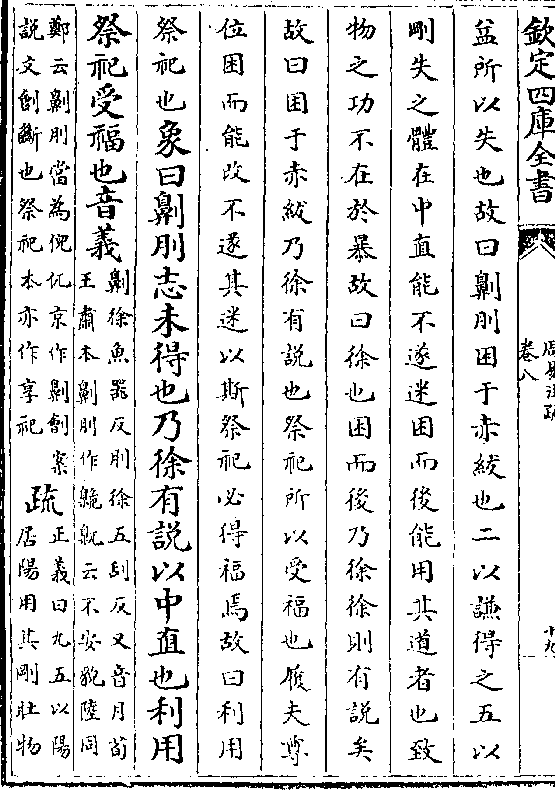 欽定四庫全書
周易注疏
卷八
十九
益所以失也故曰劓刖困于赤紱也二以謙得之五以
剛失之體在中直能不遂迷困而後能用其道者也致
物之功不在於暴故曰徐也困而後乃徐徐則有說矣
故曰困于赤紱乃徐有說也祭祀所以受福也履夫尊
位困而能改不遂其迷以斯祭祀必得福焉故曰利用
祭祀也象曰劓刖志未得也乃徐有說以中直也利用
祭祀受福也音義
劓徐魚器反刖徐五刮反又音月荀
王肅本劓刖作臲卼云不安貌陸同
鄭云劓刖當為倪㐳京作劓劊案
說文劊斷也祭祀本亦作享祀
疏
正義曰九五以陽
居陽用其剛壯物